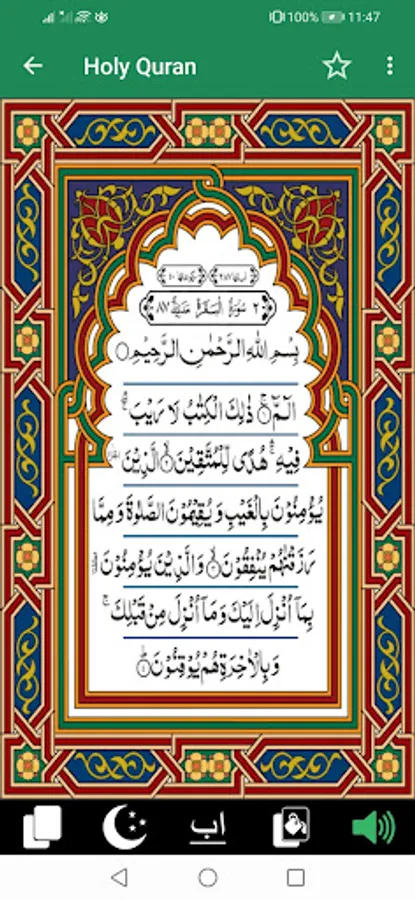 100% 11:47
Holy Quran
٢ سُوْرَةُ الْبَقَرَةِ مَدَنِيَّةٌ ٨٧
بِسْمِ اللّٰهِ الرَّحْمٰنِ الرَّحِيْمِ
الٓمّٓ ۚ ذٰلِكَ الْكِتٰبُ لَا رَيْبَ ۛۖ
فِيْهِ ۛۚ هُدًى لِّلْمُتَّقِيْنَ ۙ الَّذِيْنَ
يُؤْمِنُوْنَ بِالْغَيْبِ وَ يُقِيْمُوْنَ الصَّلٰوةَ وَ مِمَّا
رَزَقْنٰهُمْ يُنْفِقُوْنَ ۙ وَالَّذِيْنَ يُؤْمِنُوْنَ
بِمَآ اُنْزِلَ اِلَيْكَ وَ مَآ اُنْزِلَ مِنْ قَبْلِكَ ۚ
وَ بِالْاٰخِرَةِ هُمْ يُوْقِنُوْنَ
اب